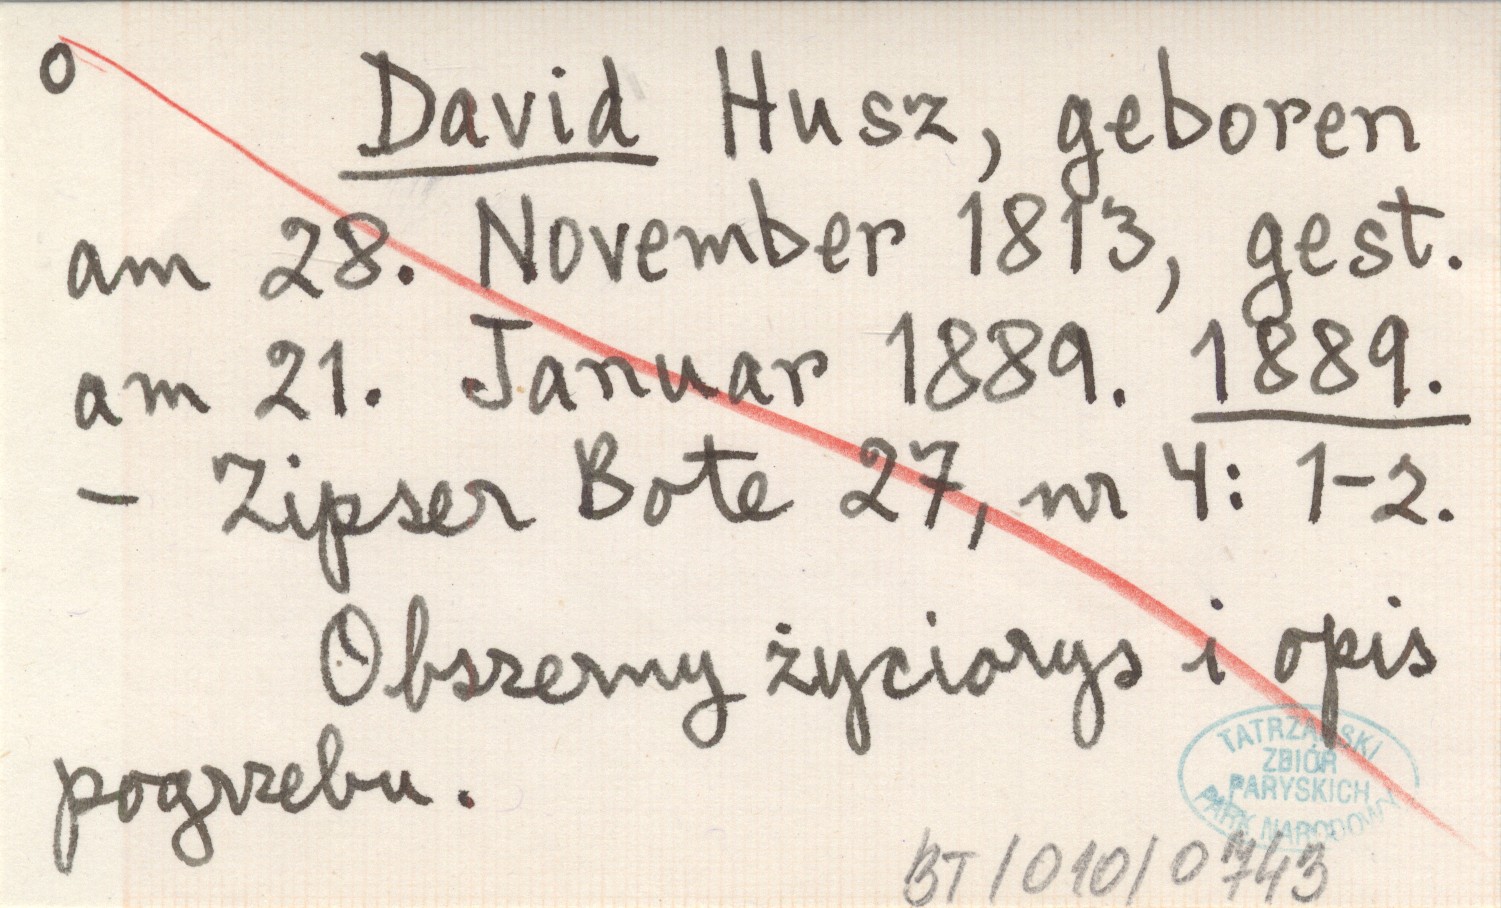 o David Husz, geboren
am 28. November 1813, gest.
am 21. Januar 1889. 1889.
- Zipser Bote 27, nr 4: 1-2.
Obszerny życiorys i opis
pogrzebu.
TATRZAŃSKI
ZBIÓR
PARYSKICH
PARK NARODOWY
BT/010/0743